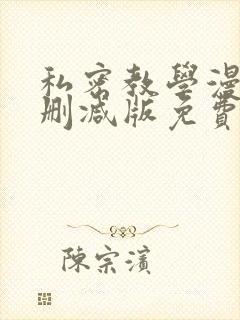 私密教學漫
刪減版免費
陳宗濱